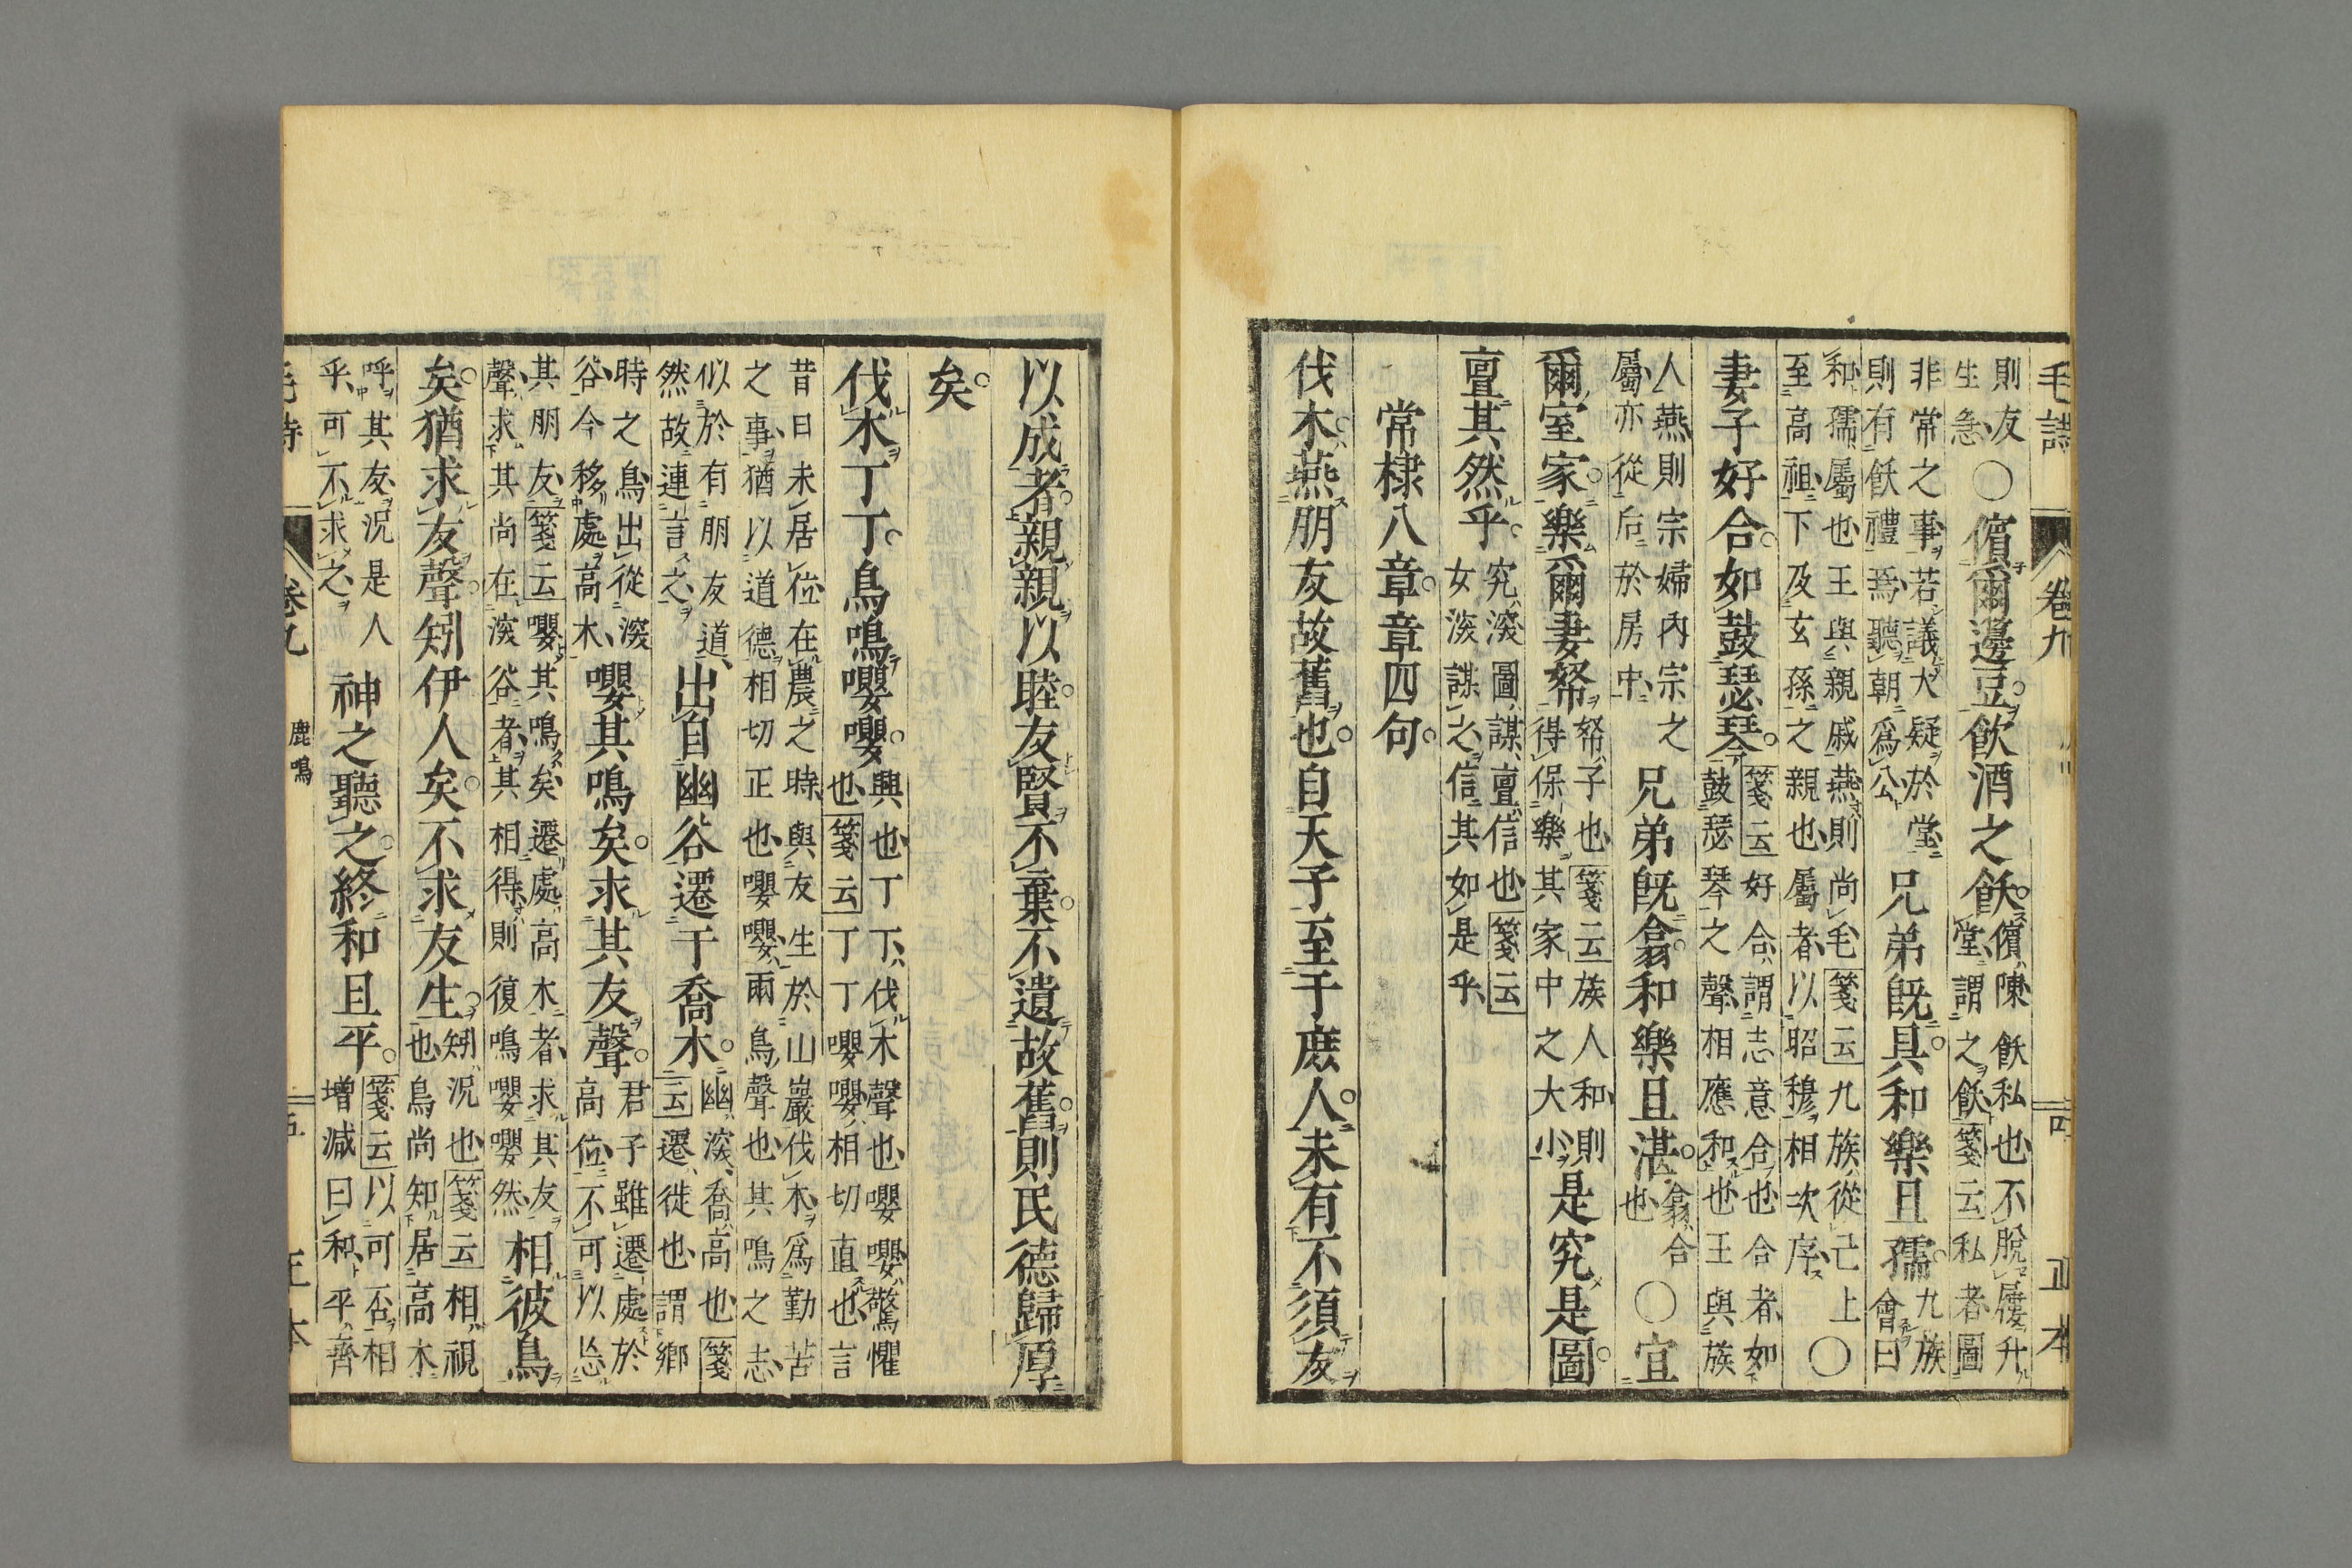 毛詩 卷九 正本
則友生急○儐爾籩豆飲酒之飫儐陳飫私也不脫屨升堂謂之飫箋云私者圖
非常之事若議大疑於堂則有飫禮焉聽朝爲公兄弟旣具和樂且孺九族會曰
和孺屬也王與親戚燕則尚毛箋云九族從己上至高祖下及玄孫之親也屬者以昭穆相次序○
妻子好合如鼓瑟琴箋云好合謂志意合也合者如鼓瑟琴之聲相應和也王與族
人燕則宗婦內宗之屬亦從后於房中兄弟旣翕和樂且湛翕合也○宜
爾室家樂爾妻帑帑子也箋云族人和則得保樂其家中之大小是究是圖
亶其然乎究深圖謀亶信也箋云女深謀之信其如是乎
常棣八章章四句
伐木燕朋友故舊也自天子至于庶人未有不須友
以成者親親以睦友賢不棄不遺故舊則民德歸厚
矣
伐木丁丁鳥鳴嚶嚶興也丁丁伐木聲也嚶嚶驚懼也箋云丁丁嚶嚶相切直也言
昔日未居位在農之時與友生於山巖伐木爲勤苦之事猶以道德相切正也嚶嚶兩鳥聲也其鳴之志
似於有朋友道然故連言之出自幽谷遷于喬木幽深喬高也箋云遷徙也謂鄉
時之鳥出從深谷今移處高木嚶其鳴矣求其友聲君子雖遷處於高位不可以忘
其朋友箋云嚶其鳴矣遷處高木者求其友聲求其尚在深谷者其相得則復鳴嚶嚶然相彼鳥
矣猶求友聲矧伊人矣不求友生矧況也箋云相視也鳥尚知居高木
呼其友況是人乎可不求之神之聽之終和且平箋云以可否相增減曰和平齊
毛詩 卷九 鹿鳴 五 正本